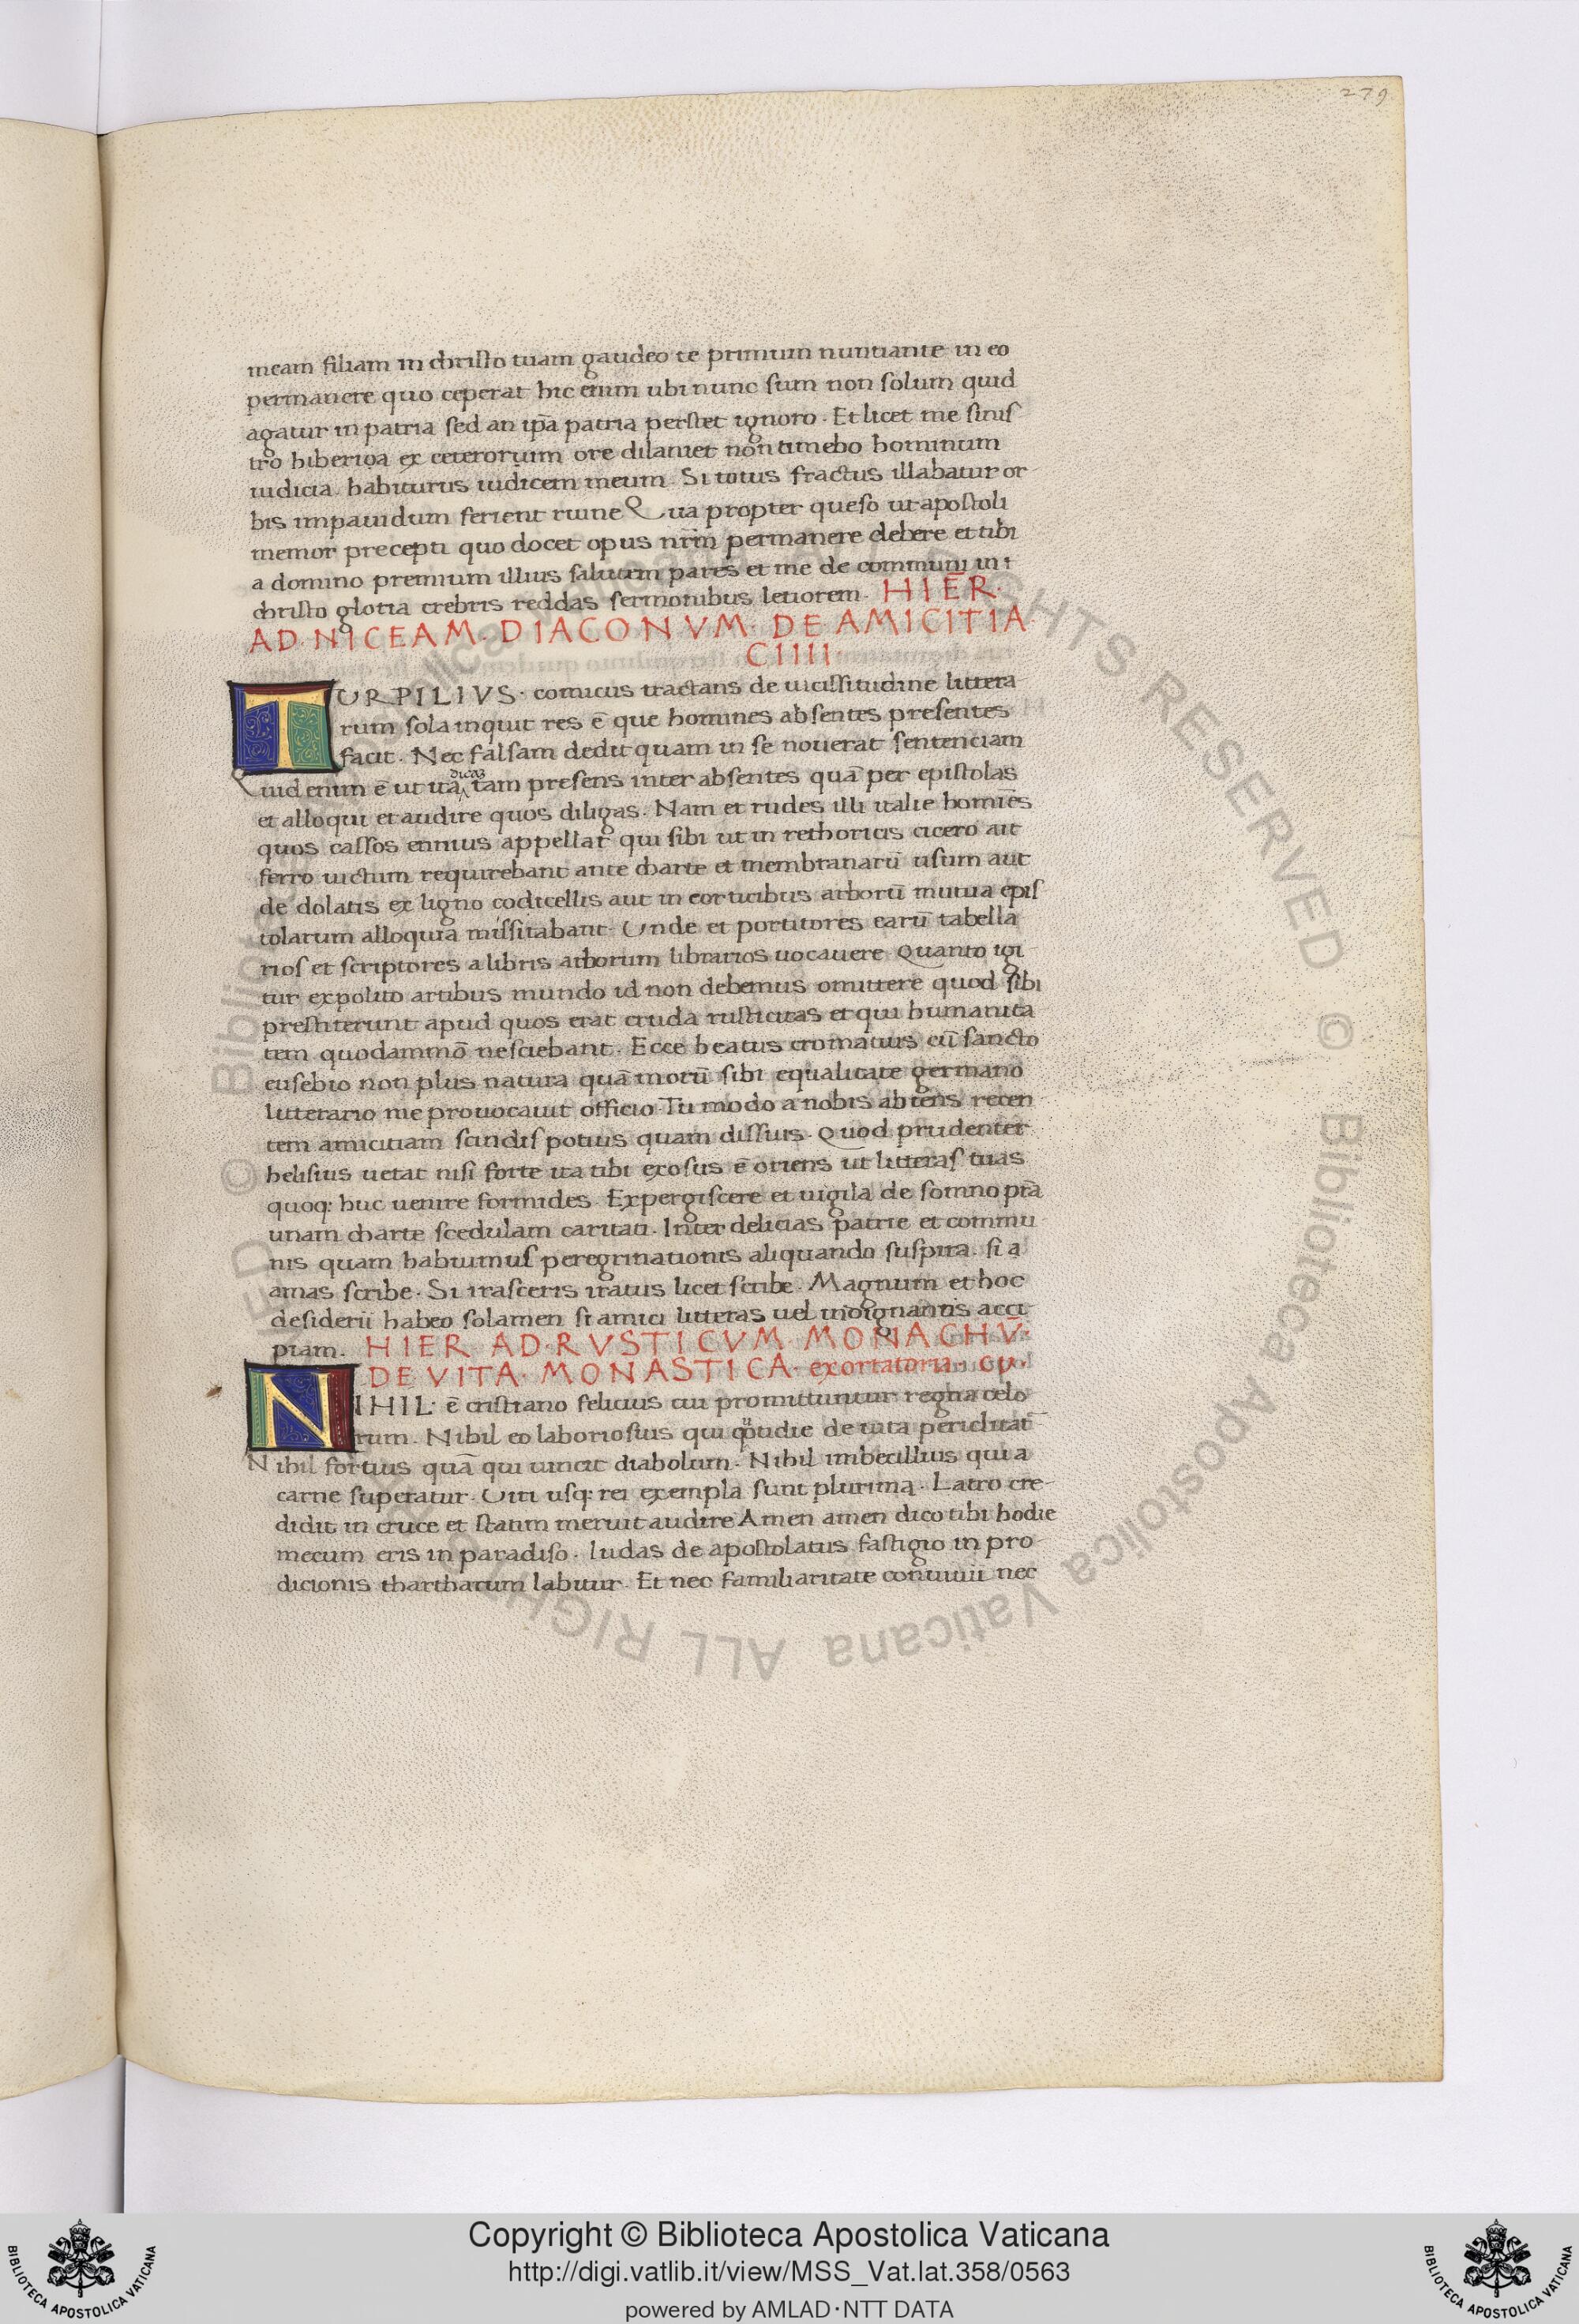 279
meam filiam in christo tuam gaudeo te primum nuntiante in eo
permanere quo ceperat hic enim ubi nunc sum non solum quid
agatur in patria sed an ip̄a patria perstet ignoro · Et licet me sinis
tro hiberica ex ceterorum ore dilaniet non timebo hominum
iudicia habiturus iudicem meum · Si totus fractus illabatur or-
bis impauidum ferient ruine Qua propter queso ut apostoli
memor precepti quo docet opus nr̄m permanere debere et tibi
a domino premium illius salutem pares et me de communi in
christo gloria crebris reddas sermonibus letiorem · HIER̄·
AD·NICEAM·DIACONVM·DE AMICITIA
CIIII
TURPILIVS · comicus tractans de uicissitudine littera
rum sola inquit res ē que homines absentes presentes
facit · Nec falsam dedit quam in se nouerat sentenciam
Quid enim ē ut ita dicaꝫ tam presens inter absentes quā per epistolas
et alloqui et audire quos diligas · Nam et rudes illi italie homīes
quos cassos ennius appellat qui sibi ut in rethoricis cicero ait
ferro uictum requirebant ante charte et membranarū usum aut
de dolatis ex ligno codicellis aut in corticibus arborū mutua epis
tolarum alloquia missitabant · Unde et portitores earū tabella
rios et scriptores a libris arborum librarios uocauere Quanto igi
tur expolito artibus mundo id non debemus omittere quod sibi
prestiterunt apud quos erat cruda rusticitas et qui humanita
tem quodammō nesciebant · Ecce beatus cromatius cū sancto
eusebio non plus natura quā morū sibi equalitate germano
litterario me prouocauit officio · Tu modo a nobis abiens recen
tem amicitiam scindis potius quam dissuis · Quod prudenter
helisius uetat nisi forte ita tibi exosus ē oriens ut litteras tuas
quoq: huc uenire formides · Expergiscere et uigila de somno p̄ta
unam charte scedulam caritati · Inter delicias patrie et commu
nis quam habuimus peregrinationis aliquando suspira · si a
amas scribe · Si irasceris iratus licet scribe · Magnum et hoc
desiderii habeo solamen si amici litteras uel indignantis acci-
piam · HIER AD·RVSTICVM·MONACHV̄·
DE VITA·MONASTICA· exortatoria· cv·
NIHIL· ē cristiano felicius cui promittuntur regna celo
rum · Nihil eo laboriosius qui qotidie de uita periclitat̄
Nihil fortius quā qui uincit diabolum · Nihil imbecillius qui a
carne superatur · Uiti usq: rei exempla sunt plurima · Latro cre-
didit in cruce et statim meruit audire Amen amen dico tibi hodie
mecum eris in paradiso · Iudas de apostolatus fastigio in pro
dicionis thartharum labitur · Et nec familiaritate conuiuii nec
Copyright © Biblioteca Apostolica Vaticana
http://digi.vatlib.it/view/MSS_Vat.lat.358/0563
powered by AMLAD·NTT DATA